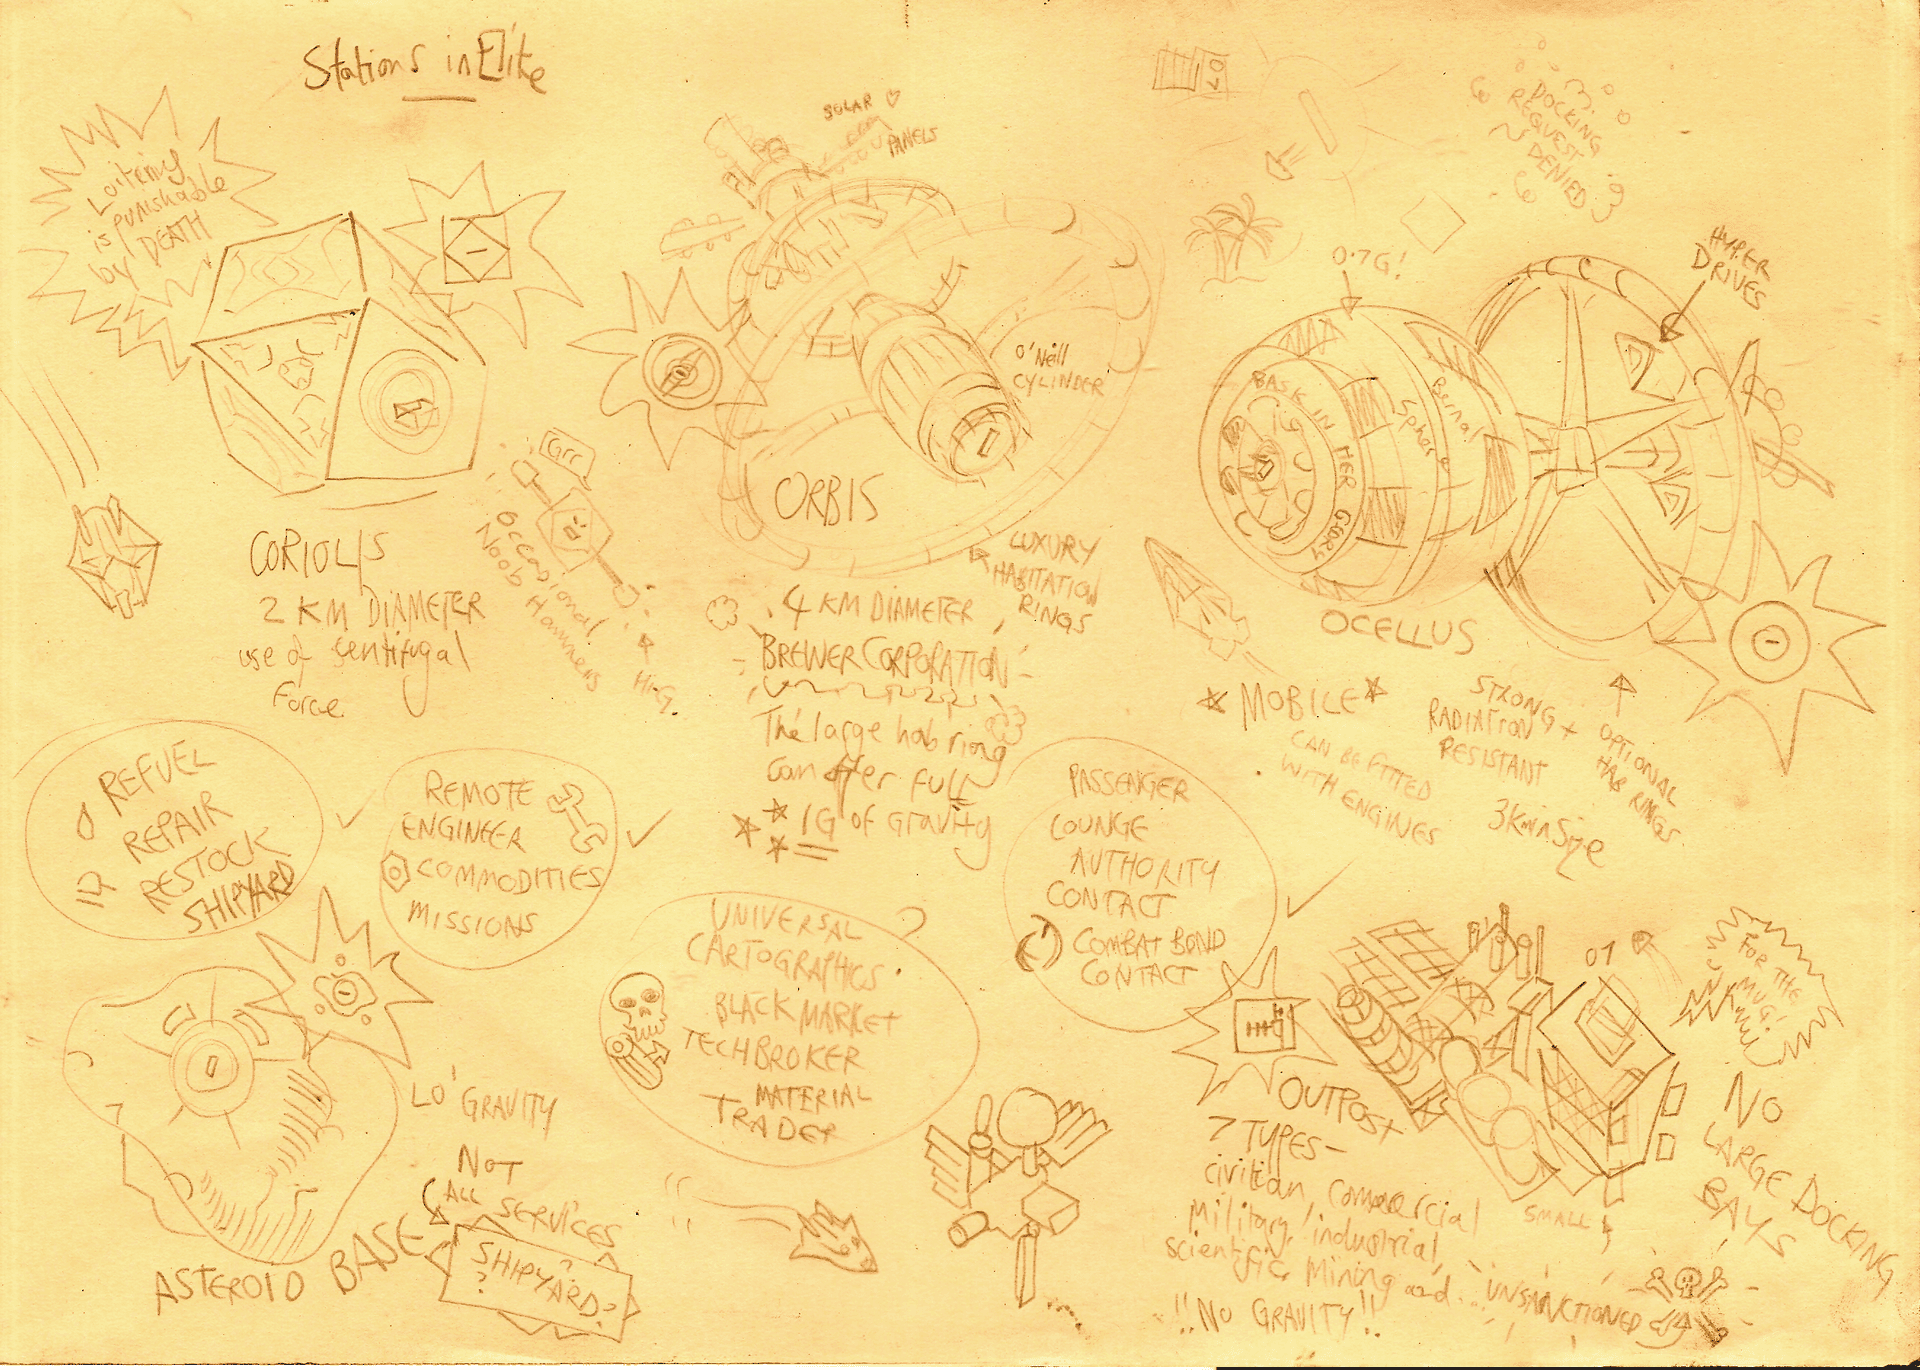 Stations in Elite
Loitering
is punishable
by DEATH
SOLAR ♡
PANELS
07
DOCKING
REQUEST
DENIED
0.7G!
HYPER
DRIVES
O'Neill
CYLINDER
BASK IN HER GLORY
Sphare
Grr
ORBIS
CORIOLIS
2 KM DIAMETER
use of sentifugal
Force
occasional
Noob Hammers
Hi-G.
LUXURY
HABITATION
RINGS
.4 KM DIAMETER
BREWER CORPORATION
The large hab ring
can offer full
1G of gravity
OCELLUS
MOBILE
CAN BE FITTED
WITH ENGINES
STRONG +
RADIATION
RESISTANT
3km in size
OPTIONAL
HAB RINGS
REFUEL
REPAIR
RESTOCK
SHIPYARD
REMOTE
ENGINEER
COMMODITIES
MISSIONS
UNIVERSAL
CARTOGRAPHICS.
BLACK MARKET
TECHBROKER
MATERIAL
TRADER
PASSENGER
LOUNGE
AUTHORITY
CONTACT
COMBAT BOND
CONTACT
LO' GRAVITY
NOT
ALL
SERVICES
SHIPYARD?
?
?
ASTEROID BASE
07
FOR THE
MUG!
OUTPOST
7 TYPES-
civilian, commercial
Military, industrial,
scientific, Mining and... UNSANCTIONED
!!NO GRAVITY!!
SMALL
NO
LARGE DOCKING
BAYS